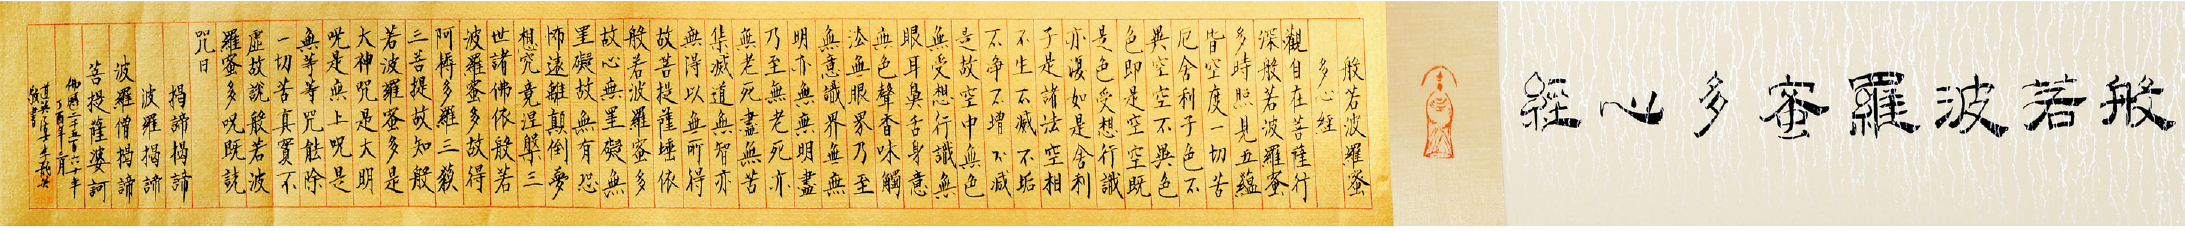 般若波羅蜜多心經
般若波羅蜜
多心經
觀自在菩薩行
深般若波羅蜜
多時照見五蘊
皆空度一切苦
厄舍利子色不
異空空不異色
色即是空空既
是色受想行識
亦復如是舍利
子是諸法空相
不生不滅不垢
不净不增不減
是故空中無色
無受想行識無
眼耳鼻舌身意
無色聲香味觸
法無眼界乃至
無意識界無無
明亦無無明盡
乃至無老死亦
無老死盡無苦
集滅道無智亦
無得以無所得
故菩提薩埵依
般若波羅蜜多
故心無罣礙無
罣礙故無有恐
怖遠離顛倒夢
想究竟涅槃三
世諸佛依般若
波羅蜜多故得
阿耨多羅三藐
三菩提故知般
若波羅蜜多是
大神咒是大明
呪是無上呪是
無等等咒能除
一切苦真實不
虛故說般若波
羅蜜多呪既說
咒曰
揭諦揭諦
波羅揭諦
波羅僧揭諦
菩提薩婆訶
佛曆二千五百六十年
丁酉年二月
敬書